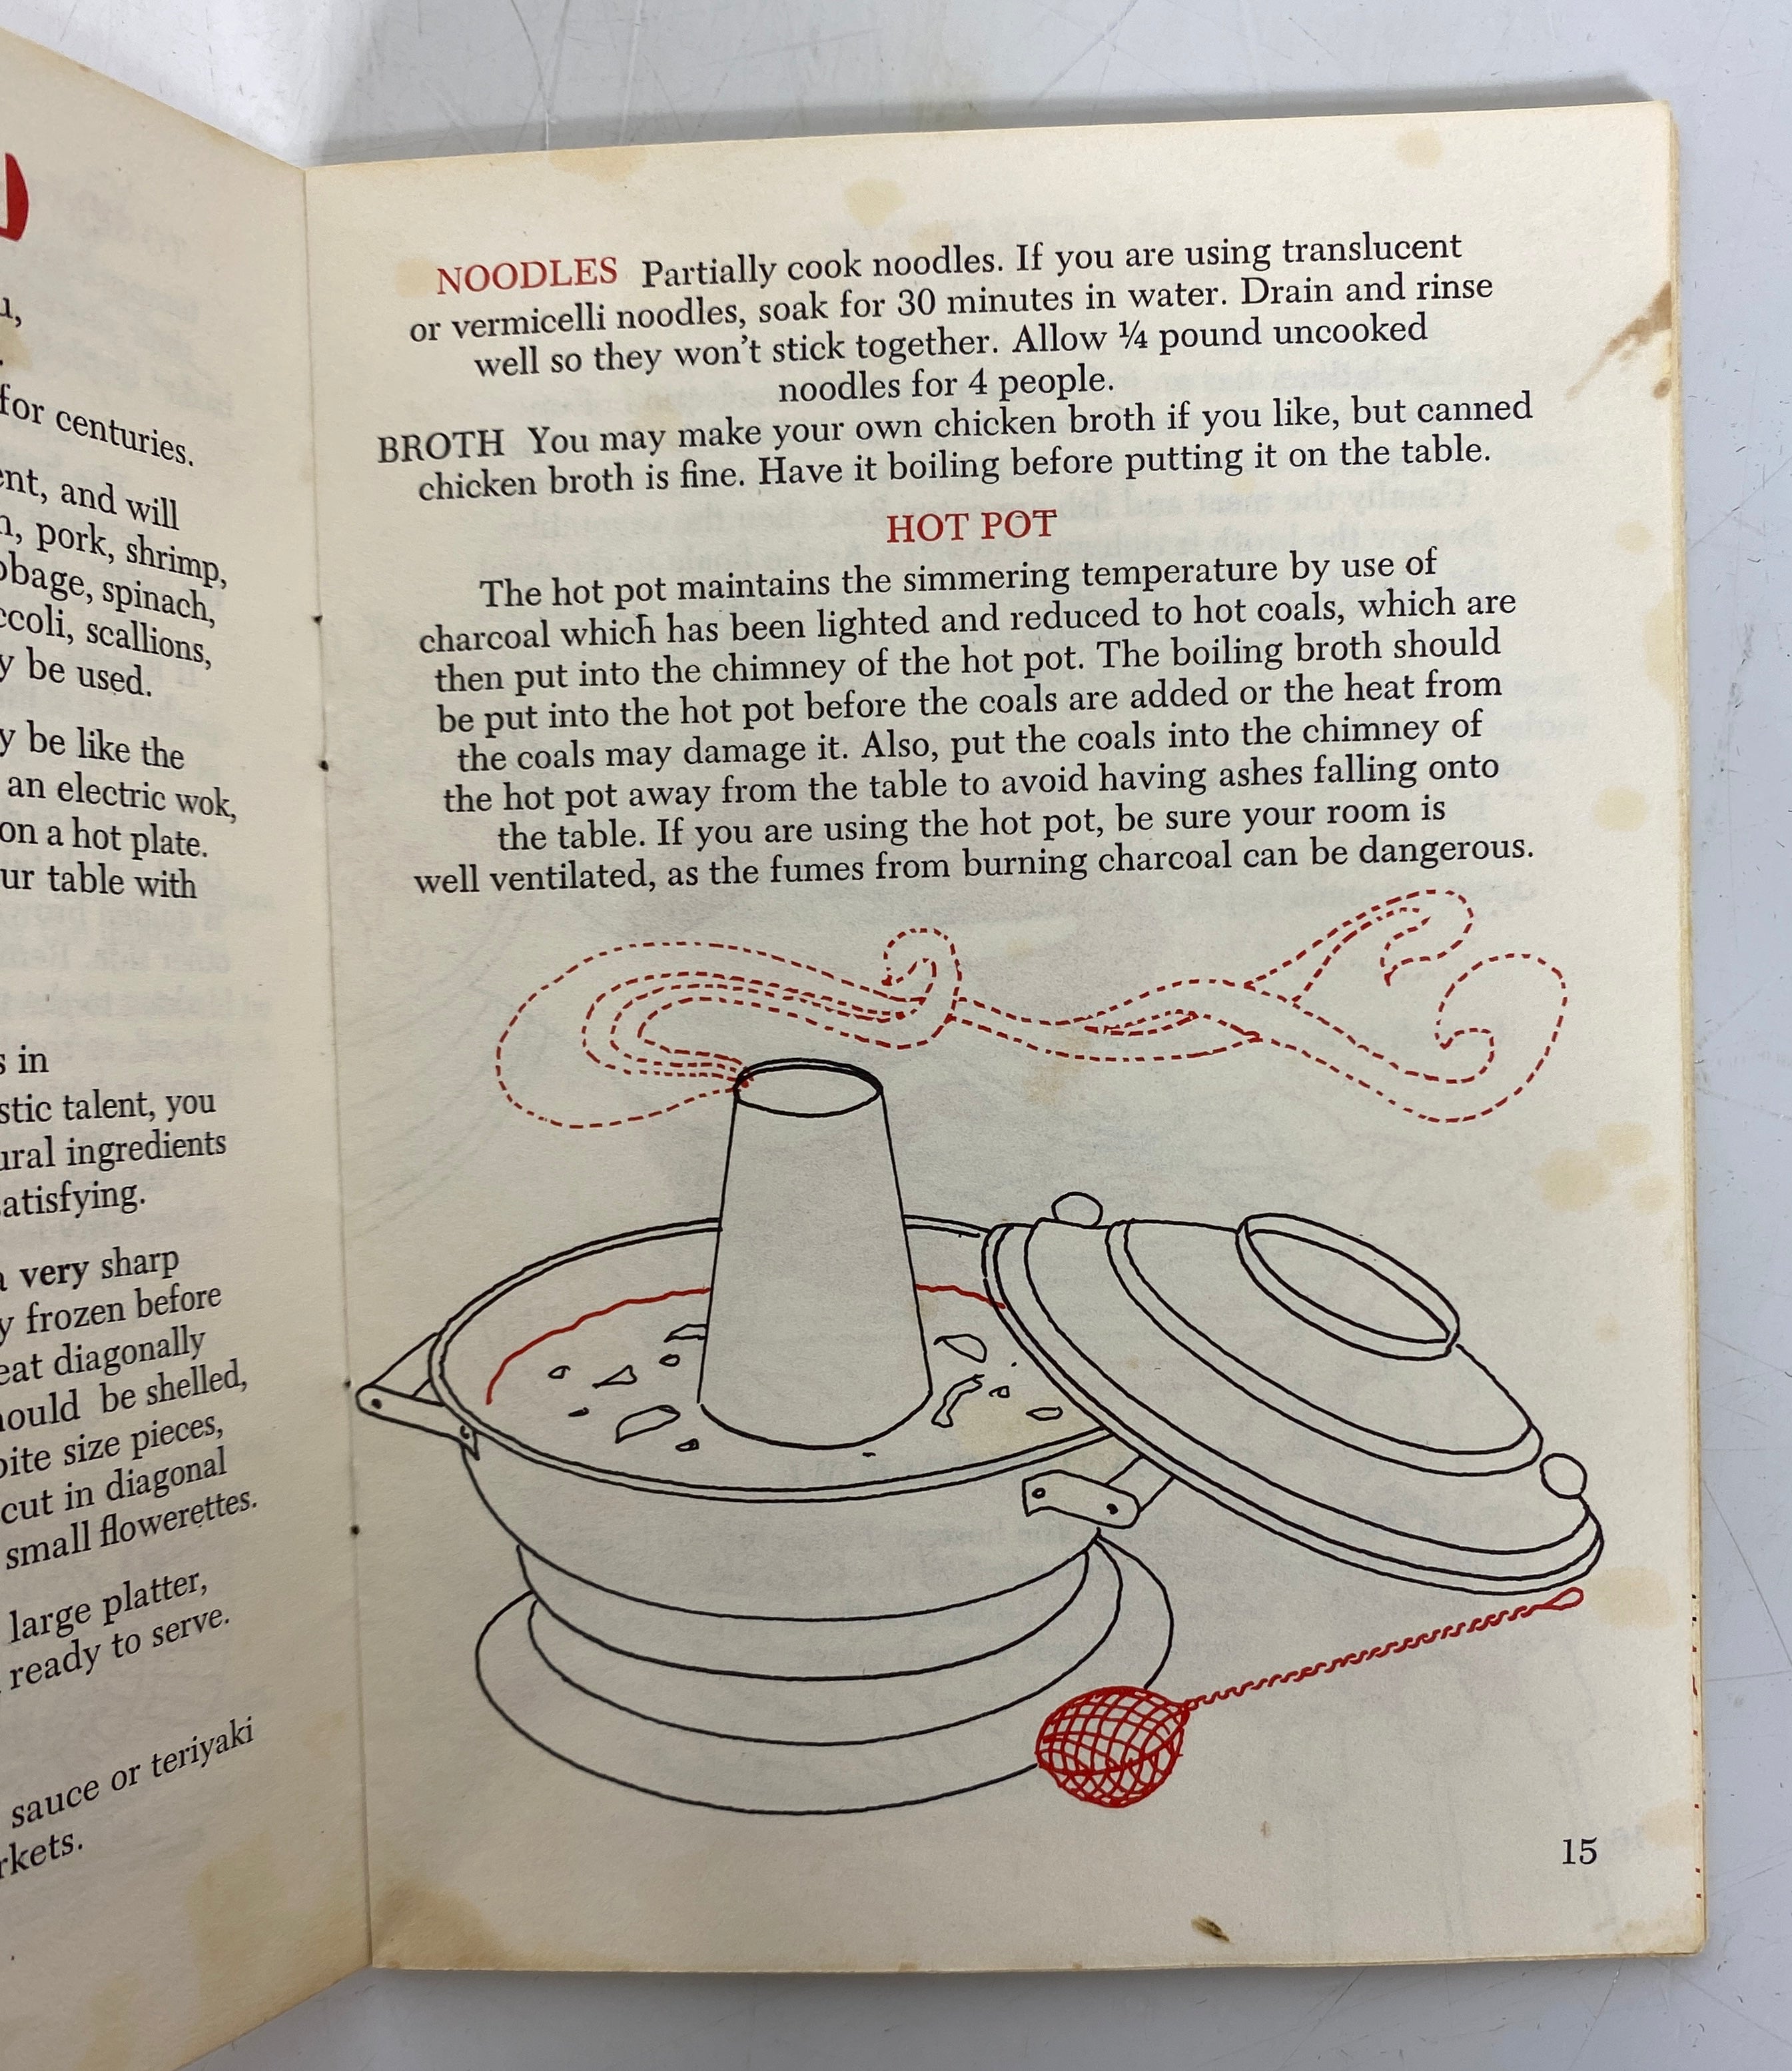 u,
for centuries.
ent, and will
pork, shrimp,
bbage, spinach,
ccoli, scallions,
y be used.
y be like the
an electric wok,
on a hot plate.
ur table with
s in
stic talent, you
ural ingredients
satisfying.
a very sharp
y frozen before
eat diagonally
hould be shelled,
bite size pieces,
cut in diagonal
small flowerettes.
large platter,
ready to serve.
sauce or teriyaki
rkets.
NOODLES Partially cook noodles. If you are using translucent
or vermicelli noodles, soak for 30 minutes in water. Drain and rinse
well so they won't stick together. Allow ¼ pound uncooked
noodles for 4 people.
BROTH You may make your own chicken broth if you like, but canned
chicken broth is fine. Have it boiling before putting it on the table.
HOT POT
The hot pot maintains the simmering temperature by use of
charcoal which has been lighted and reduced to hot coals, which are
then put into the chimney of the hot pot. The boiling broth should
be put into the hot pot before the coals are added or the heat from
the coals may damage it. Also, put the coals into the chimney of
the hot pot away from the table to avoid having ashes falling onto
the table. If you are using the hot pot, be sure your room is
well ventilated, as the fumes from burning charcoal can be dangerous.
15